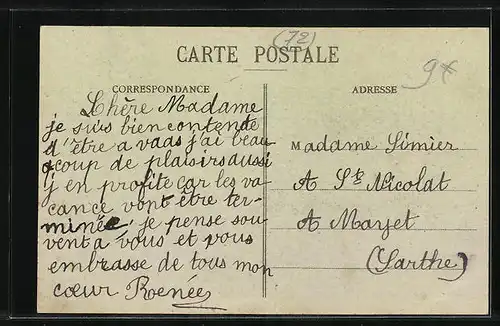 (72)
CARTE POSTALE
9€
CORRESPONDANCE
Chère Madame
je suis bien contente
d'être a vaas j'ai beau
coup de plaisirs aussi
j'en profite car les va
cance vont être ter-
minée, je pense sou
vent a vous et vous
embrasse de tous mon
cœur Renée
ADRESSE
Madame Simier
A Ste Nicolat
A Mayet
(Sarthe)